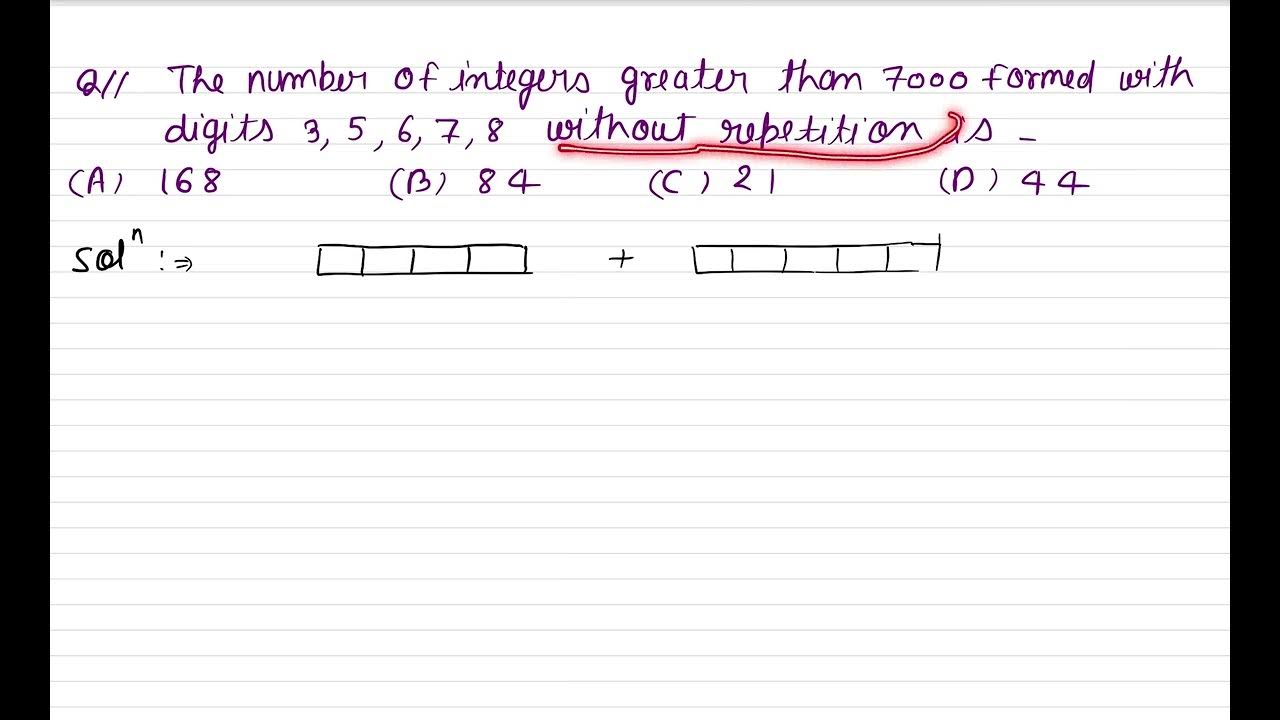 Q// The number of integers greater than 7000 formed with
digits 3, 5, 6, 7, 8 without repetition is -
(A) 168 (B) 84 (C) 21 (D) 44
Solⁿ :⇒ +